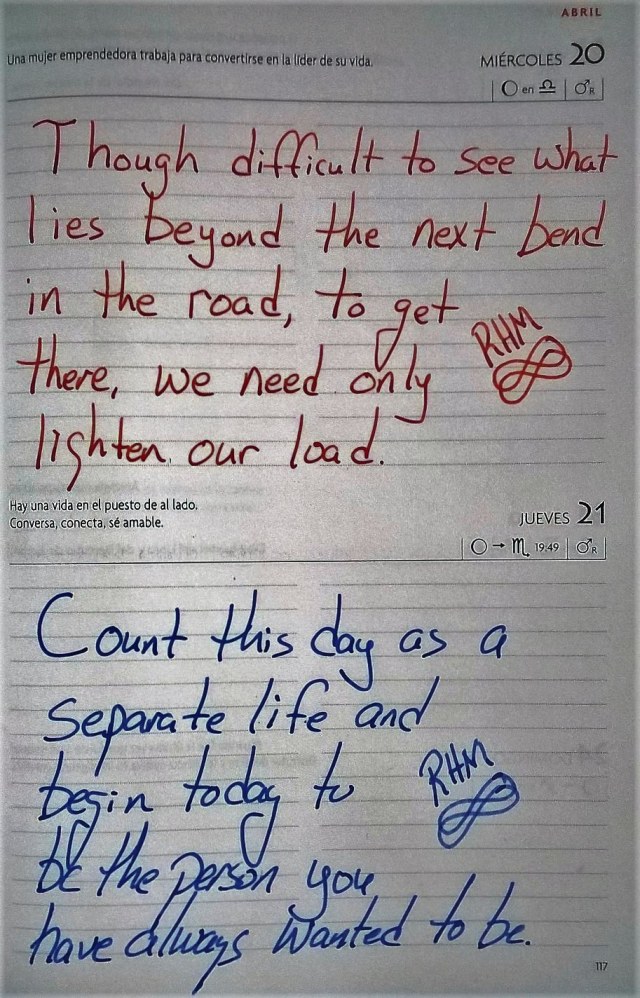 ABRIL
Una mujer emprendedora trabaja para convertirse en la líder de su vida.
MIÉRCOLES 20
○ en ♎ | ♂R
Though difficult to see what
lies beyond the next bend
in the road, to get
there, we need only
lighten our load.
RHM
Hay una vida en el puesto de al lado.
Conversa, conecta, sé amable.
JUEVES 21
○→♏ 19:49 | ♂R
Count this day as a
separate life and
begin today to
be the person you
have always wanted to be.
RHM
117